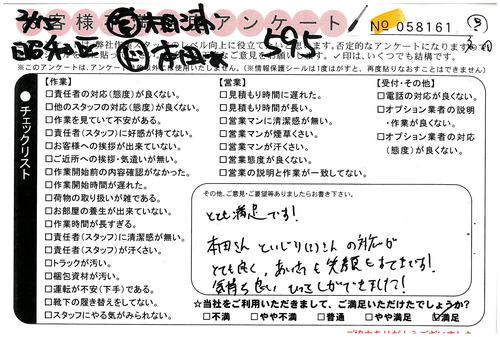 お客様 アンケート
No 058161
595
このアンケートは、弊社
レベル向上に役立て
否定的なアンケートになりますの
✓印は、いくつでも結構です。
チェックリスト
【作業】
□責任者の対応(態度)が良くない。
□他のスタッフの対応(態度)が良くない。
□作業を見ていて不安がある。
□責任者(スタッフ)に好感が持てない。
□お客様への挨拶が出来ていない。
□ご近所への挨拶・気遣いが無い。
□作業開始前の内容確認がなかった。
□作業開始時間が遅れた。
□荷物の取り扱いが雑である。
□お部屋の養生が出来ていない。
□作業時間が長すぎる。
□責任者(スタッフ)に清潔感が無い。
□責任者(スタッフ)が汗くさい。
□トラックが汚い。
□梱包資材が汚い。
□運転が不安(下手)である。
□靴下の履き替えをしてない。
□スタッフにやる気がみられない。
【営業】
□見積もり時間に遅れた。
□見積もり時間が長い。
□営業マンに清潔感が無い。
□営業マンが煙草くさい。
□営業マンが汗くさい。
□営業態度が良くない。
□営業の説明と作業が一致してない。
【受付・その他】
□電話の対応が良くない。
□オプション業者の説明
・作業が良くない。
□オプション業者の対応
(態度)が良くない。
その他、ご意見・ご要望等ありましたらお書き下さい。
とても満足です!
本田さん
さん の対応が
とても良く、あいさつも笑顔もすてきです!
気持ち良い ひっこしができました!!
☆当社をご利用いただきまして、ご満足いただけたでしょうか?
□不満 □やや不満 □普通 □やや満足 ☑満足
ご協力ありがとうございました